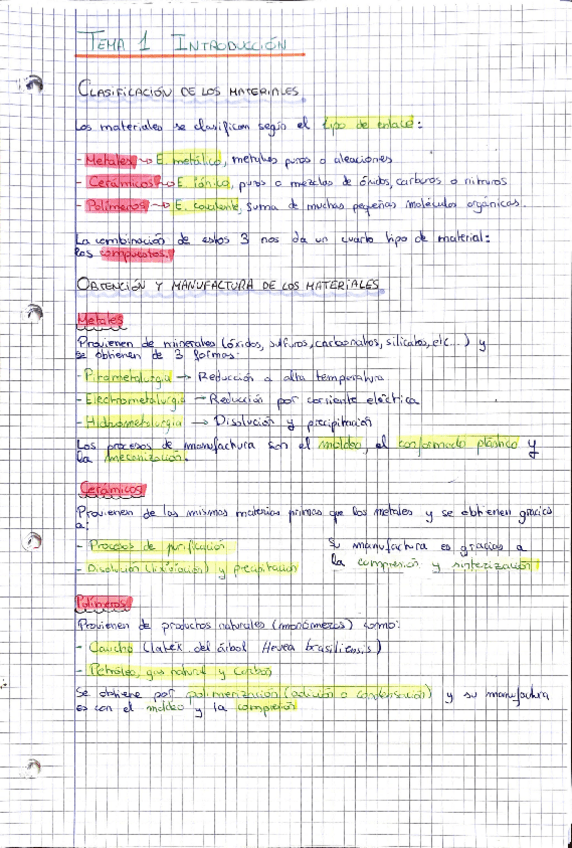 TEMA 1 INTRODUCCIÓN
CLASIFICACIÓN DE LOS MATERIALES
Los materiales se clasifican según el tipo de enlace:
- Metales → E. metálico, metales puros o aleaciones
- Cerámicos → E. iónico, puros o mezclas de óxidos, carburos o nitruros
- Polímeros → E. covalente, suma de muchas pequeñas moléculas orgánicas.
La combinación de estos 3 nos da un cuarto tipo de material:
los compuestos.
OBTENCIÓN Y MANUFACTURA DE LOS MATERIALES
Metales
Provienen de minerales (óxidos, sulfuros, carbonatos, silicatos, etc...) y
se obtienen de 3 formas:
- Pirometalurgia → Reducción a alta temperatura
- Electrometalurgia → Reducción por corriente eléctrica
- Hidrometalurgia → Disolución y precipitación
Los procesos de manufactura son el moldeo, el conformado plástico y
la mecanización.
Cerámicos
Provienen de las mismas materias primas que los metales y se obtienen gracias
a:
- Procesos de purificación
- Disolución (lixiviación) y precipitación
Su manufactura es gracias a
la compresión y sinterización
Polímeros
Provienen de productos naturales (monómeros) como:
- Caucho (latex del árbol Hevea brasiliensis)
- Petróleo, gas natural y carbón
Se obtiene por polimerización (adición o condensación) y su manufactura
es con el moldeo y la compresión